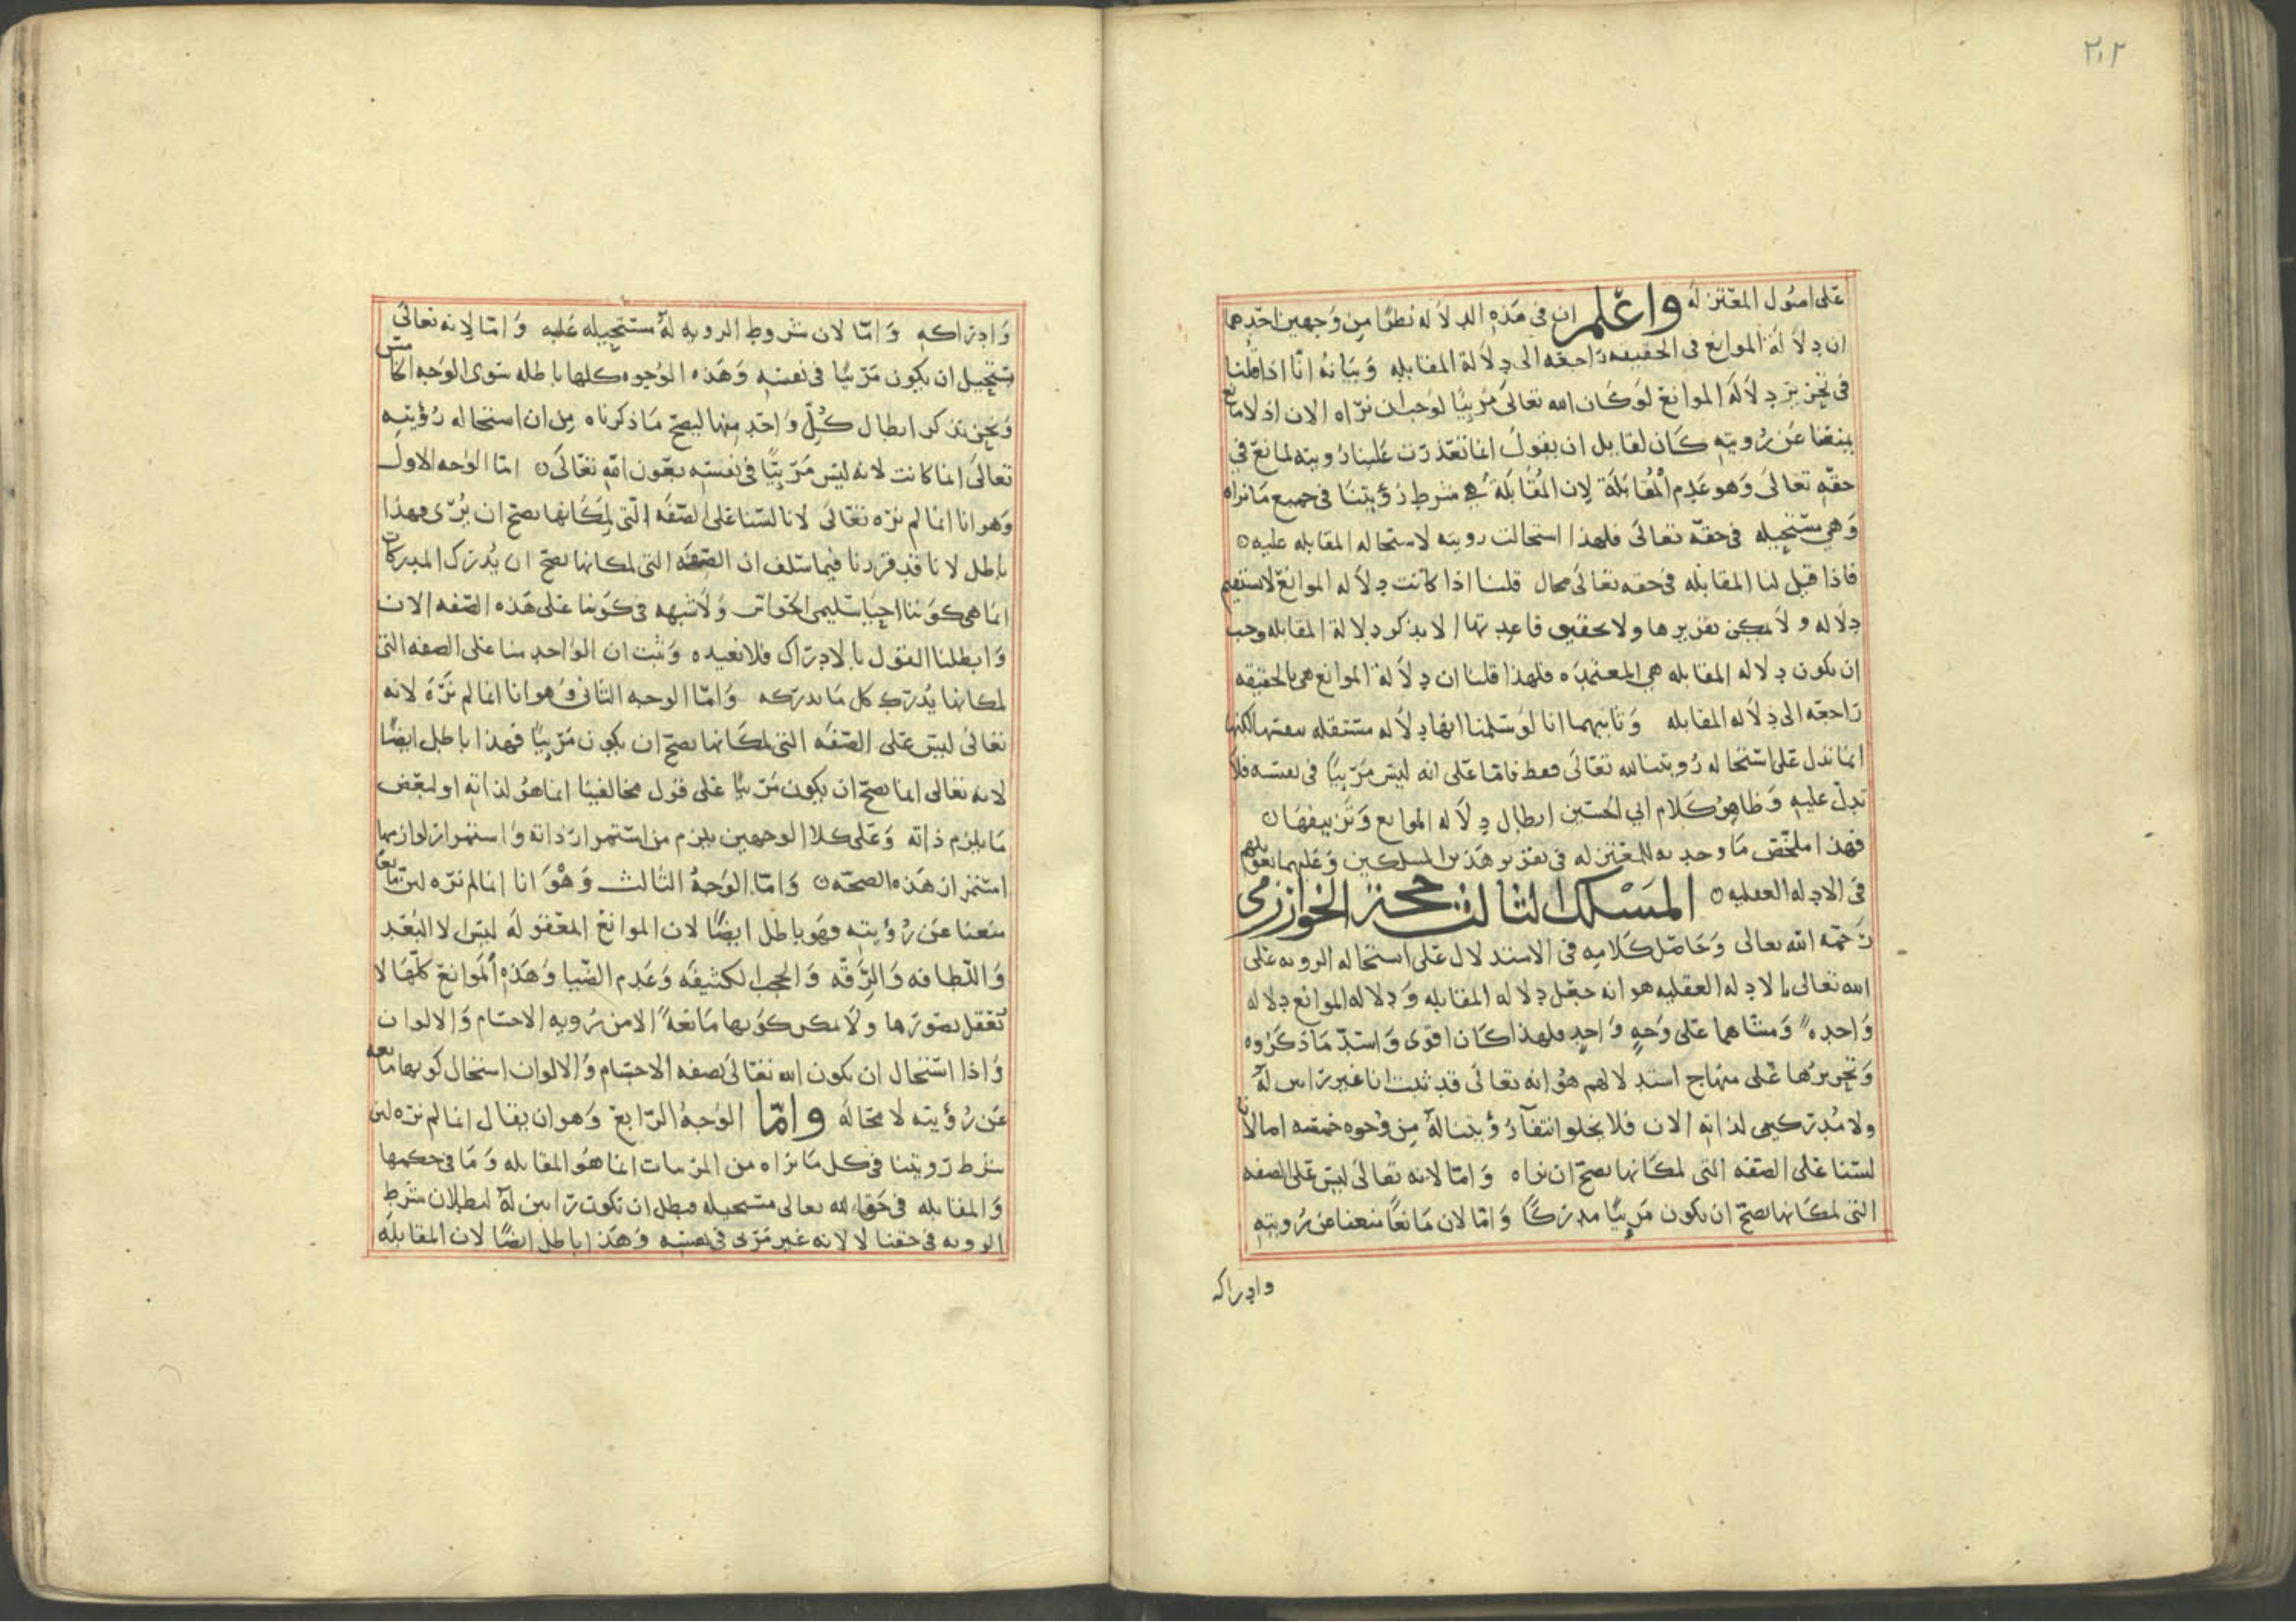 ٢٠٢
على اصول المعتزله واعلم ان في هذه الدلاله نظرًا من وجهين احدهما
ان دلالة الموانع في الحقيقه راجعه الى دلالة المقابله وبيانه انّا اذا قلنا
في تحرير دلاله الموانع لو كان الله تعالى مرئيًا لوجب ان نراه الان اذ لا مانع
يمنعنا عن رويته كان لقايل ان يقول انما تعذرت علينا رويته لمانع في
حقه تعالى وهو عدم المقابلة لان المقابلة هي شرط رؤيتنا في جميع ما نراه
وهي مستحيله في حقه تعالى فلهذا استحالت رويته لاستحاله المقابله عليه ن
فاذا قيل لنا المقابله في حقه تعالى محال قلنا اذا كانت دلاله الموانع لا تستقيم
دلاله ولا يمكن تقريرها ولا تحقيق قاعدتها الا بذكر دلالة المقابله وجب
ان تكون دلاله المقابله هي المعتمده فلهذا قلنا ان دلالة الموانع هي بالحقيقه
راجعه الى دلاله المقابله وثانيهما انا لو سلمنا انها دلاله مستقله بنفسها لكنها
انما تدل على استحاله رويتنا لله تعالى فقط فاما على انه ليس مرئيًا في نفسه فلا
تدل عليه وظاهر كلام ابي الحسين ابطال دلاله الموانع وتزييفها ن
فهذا ملخص ما وجد به للمعتزله في تقرير هذين المسلكين وعليهما تعويلهم
في الادله العقليه ن المسلك الثالث محمود الخوارزمي
رحمه الله تعالى وحاصل كلامه في الاستدلال على استحاله الرويه على
الله تعالى بالادله العقليه هو انه جعل دلاله المقابله ودلاله الموانع دلاله
واحده ومشاهما على وجه واحد فلهذا كان اقوى واسدّ ما ذكروه
وتحريرها على منهاج استدلالهم هو انه تعالى قد ثبت انا غير رايين له
ولا مدركين لذاته الان فلا يخلوا انتفآ رؤيتنا له من وجوه خمسه اما لانا
لسنا على الصفه التى لمكانها يصح ان نراه واما لانه تعالى ليس على الصفه
التى لمكانها يصح ان يكون مرئيًا مدركًا واما لان مانعًا منعنا عن رويته
وادراكه
وادراكه واما لان شروط الرويه له مستحيله عليه واما لانه تعالى
يستحيل ان يكون مرئيًا في نفسه وهذه الوجوه كلها باطله سوى الوجه الخامس
ونحن نذكر ابطال كل واحد منها ليصح ما ذكرناه من ان استحاله رؤيته
تعالى انما كانت لانه ليس مرئيًا في نفسه بعون الله تعالى ن اما الوجه الاول
وهو انا انما لم نره تعالى لانا لسنا على الصفه التى لمكانها يصح ان يُرى فهذا
باطل لانا قد قررنا فيما سلف ان الصفه التى لمكانها يصح ان يُدرك المدركات
انما هى كوننا احيا سليمي الحواس ولا شبهه في كوننا على هذه الصفه الان
وابطلنا القول بالادراك فلا نعيده وثبت ان الواحد منا على الصفه التى
لمكانها يُدرك كل ما يدركه واما الوجه الثانى وهو انا انما لم نره لانه
تعالى ليس على الصفه التى لمكانها يصح ان يكون مرئيًا فهذا باطل ايضًا
لانه تعالى انما يصح ان يكون مرئيًا على قول مخالفينا انما هو لذاته او لبعض
ما يلزم ذاته وعلى كلا الوجهين يلزم من استمرار ذاته واستمرار لوازمها
استمرار هذه الصحه ن واما الوجه الثالث وهو انا انما لم نره لان مانعًا
منعنا عن رؤيته فهو باطل ايضًا لان الموانع المعقوله ليس الا البُعد
واللطافه والرقه والحجب الكثيفه وعدم الضيا وهذه الموانع كلها لا
تعقل تصورها ولا يمكن كونها مانعةً الا من رويه الاجسام والالوان
واذا استحال ان يكون الله تعالى بصفه الاجسام والالوان استحال كونها مانعه
عن رؤيته لا محاله واما الوجه الرابع وهو ان يقال انما لم نره لان
شرط رويتنا في كل ما نراه من المرئيات انما هو المقابله وما في حكمها
والمقابله في حق الله تعالى مستحيله فبطل ان نكون رايين له لبطلان شرط
الرويه في حقنا لا لانه غير مرئي في نفسه وهذا باطل ايضًا لان المقابله